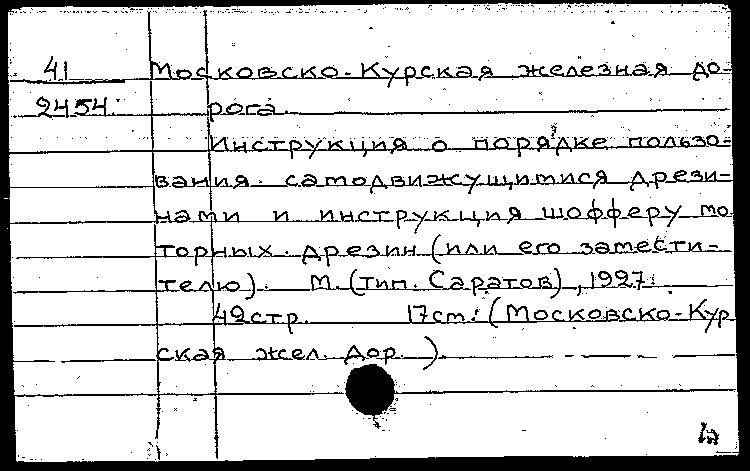 41 Московско-Курская железная до-
2454. рога.
Инструкция о порядке пользо-
вания самодвижущимися дрези-
нами и инструкция шофферу мо-
торных дрезин (или его замести-
телю). М. (тип. Саратов), 1927.
42стр. 17ст. (Московско-Кур
ская жел. дор.).